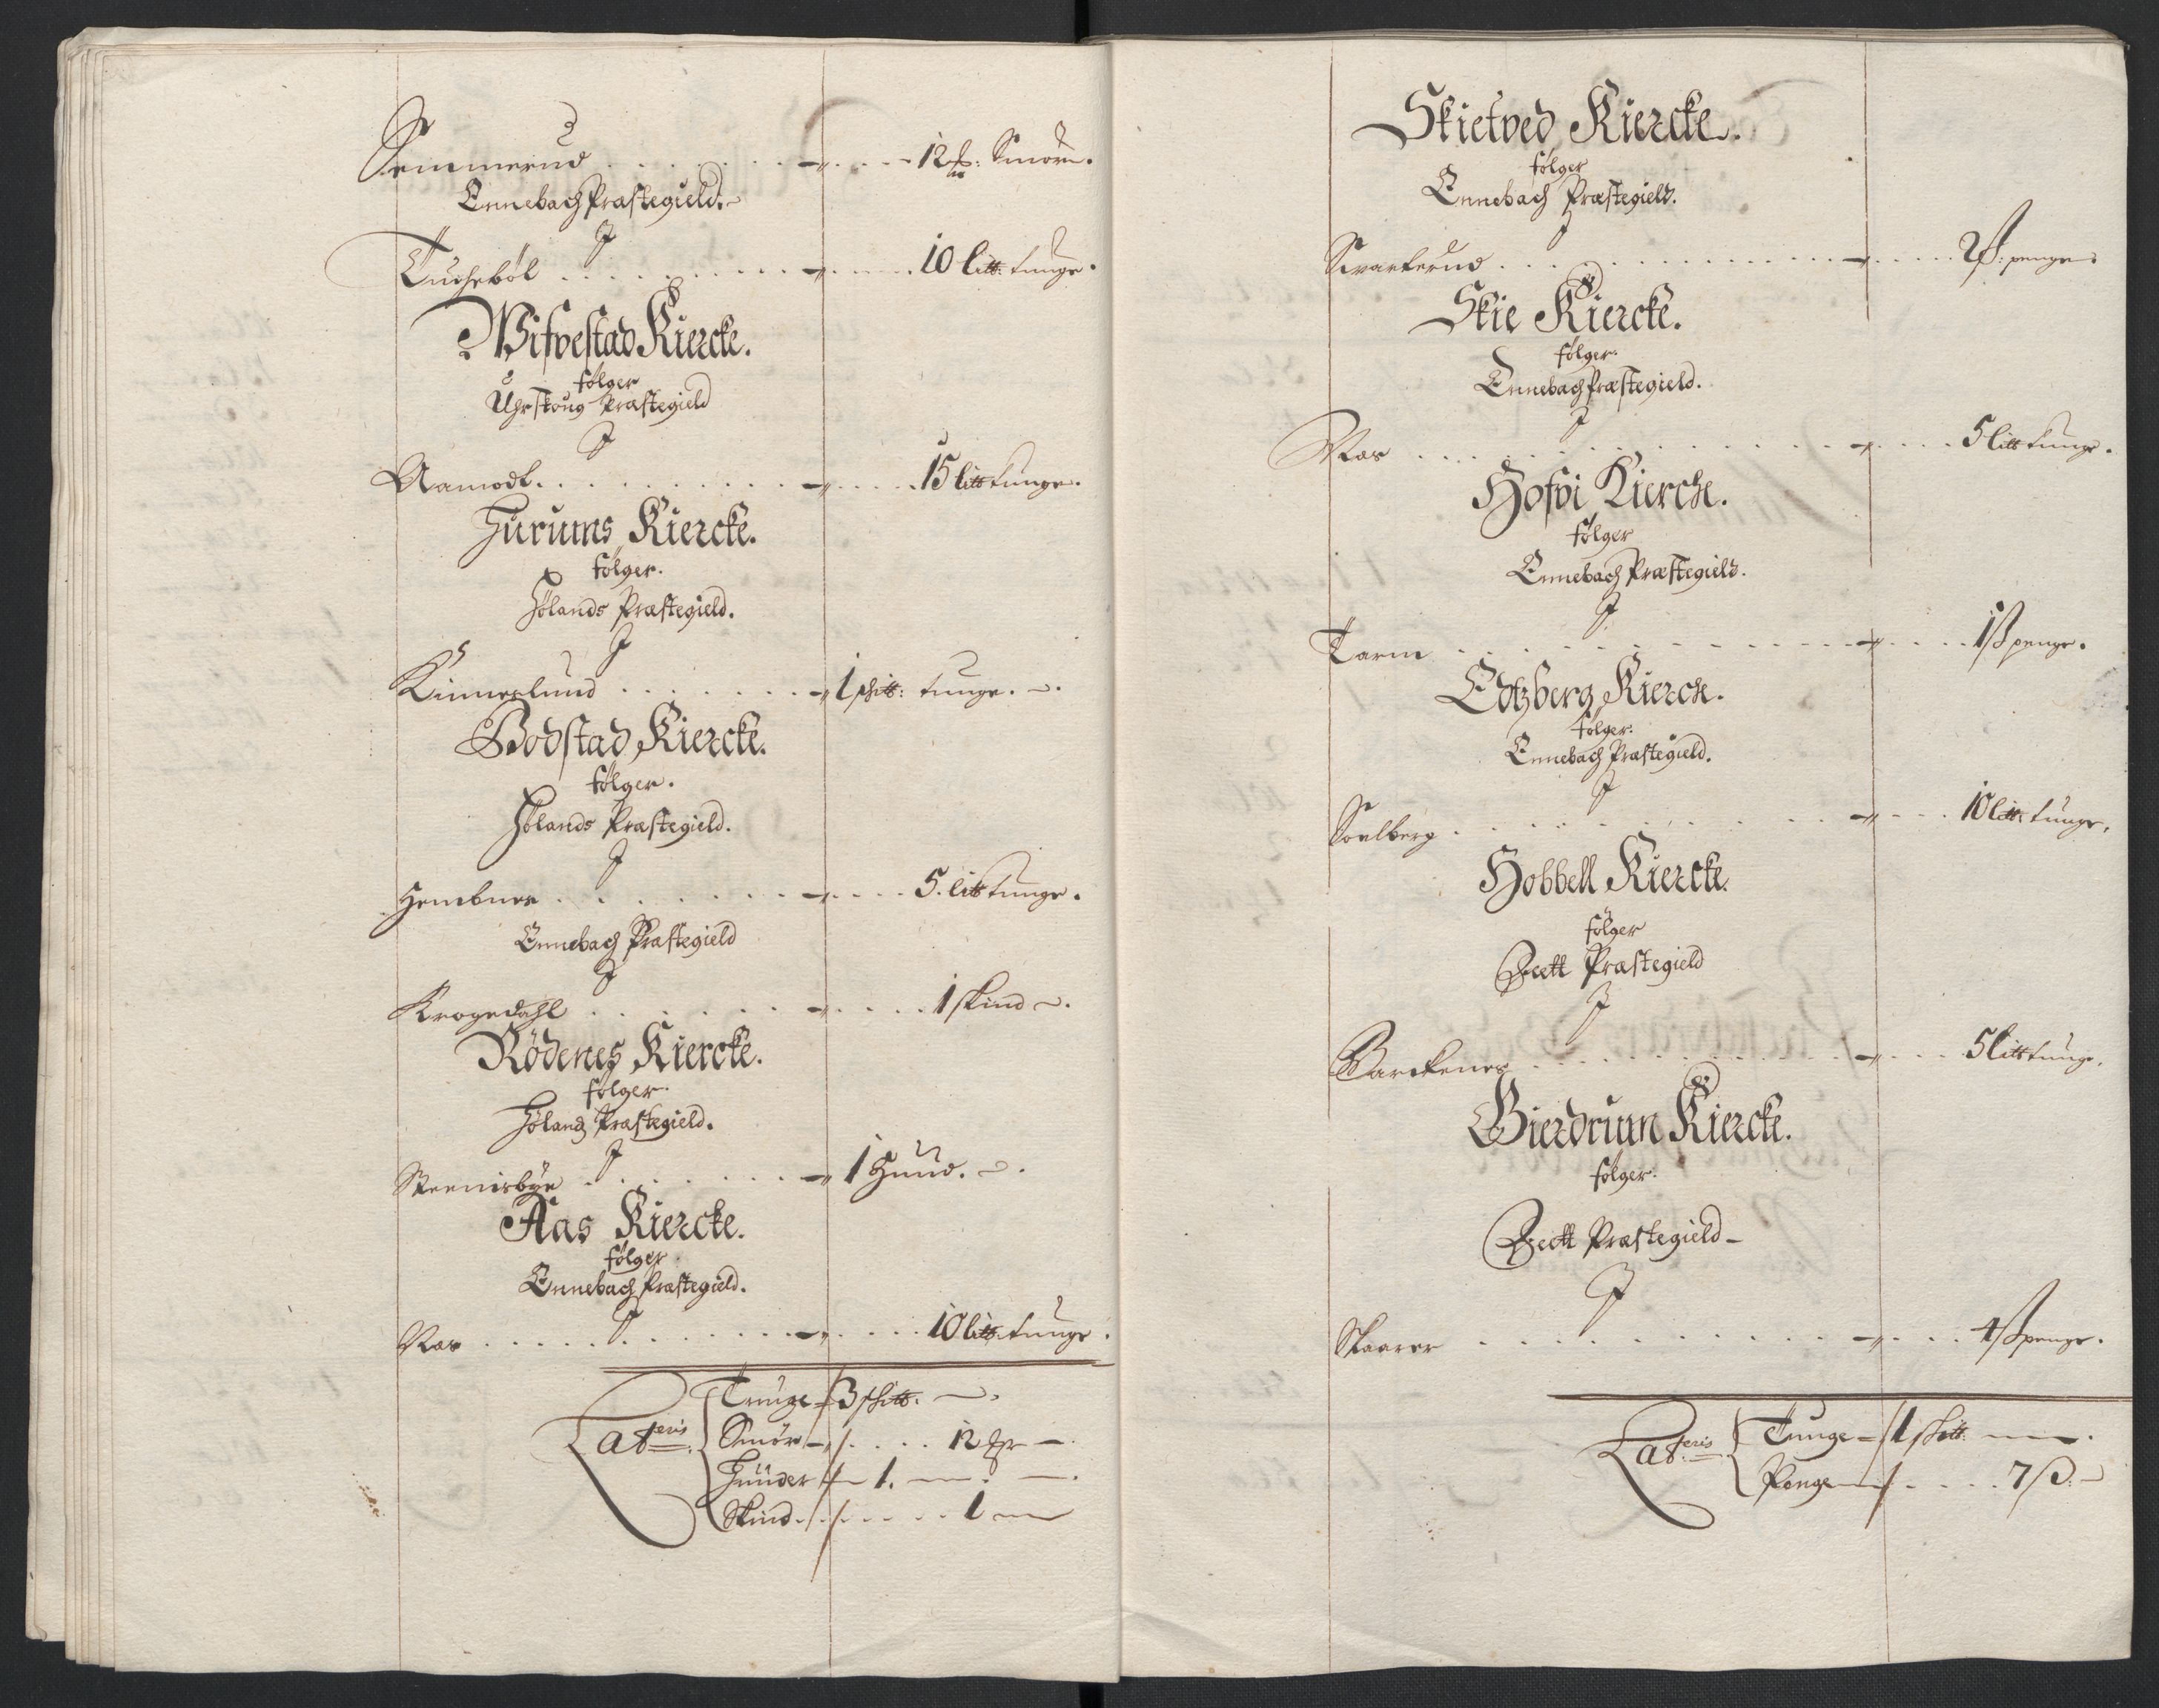 Semmerud . . . . . . . - „ . . . - 12 ℔: Smörr.
Ennebach Præstegield.
J
Tuchebøl . . . . . . . . . . - „ . . . . 10 Litt: tunge.
Wifvestad Kiercke.
følger
Uhrskoug Præstegield
J
Aamodt. . . . . . . . . . - „ . . . . 15 litt tunge.
Hurums Kiercke.
følger.
Hølands Præstegield.
J
Kinnerlund . . . . . . . - „ 1 skitt: tunge.
Bodstad Kiercke.
følger.
Hølands Præstegield.
J
Hembnes . . . . . . . - „ . . . . 5. litt tunge.
Ennebach Præstegield
J
Krogedahl . . . . . . - „ . . . . 1 skind
Rødenes Kiercke.
følger.
Høland Præstegield.
J
Steenisbye . . . . . . . - „ 1 Huud.
Aas Kiercke.
følger
Ennebach Præstegield.
J
Aas . . . . . . . . . . - „ . . . . 10 litt: tunge.
Lateris
Tunge - 3 skitt.
Smør - „ . . . . 12
Huuder - 1.
Skind . . . . . . . 1
Skietved Kiercke.
følger
Ennebach Præstegield.
J
Svarterud . . . . . . . . . . . . . - „ . . . . 2 ß: penge.
Skie Kiercke.
følger.
Ennebach Præstegield.
J
Aas . . . . . . . . . . . . . . . - „ . . . . 5 litt tunge.
Hofvi Kierche.
følger
Ennebach Præstegield.
J
Tarm . . . . . . . . . . . . - „ . . . . 1 ß penge.
Edtzberg Kierche.
følger.
Ennebach Præstegield.
J
Soelberg . . . . . . . . . . . . - „ . . . 10 litt: tunge.
Hobbell Kiercke.
følger
Geett Præstegield
J
Barckenes . . . . . . . . . . . - „ . . . . 5 litt tunge.
Gierdrum Kiercke.
følger.
Geett Præstegield
J
Skaarer . . . . . . . . . . . . - „ . . . . 4 ß penge.
Lateris
Tunge - 1 skitt.
Penge - . . . . 7 ß.